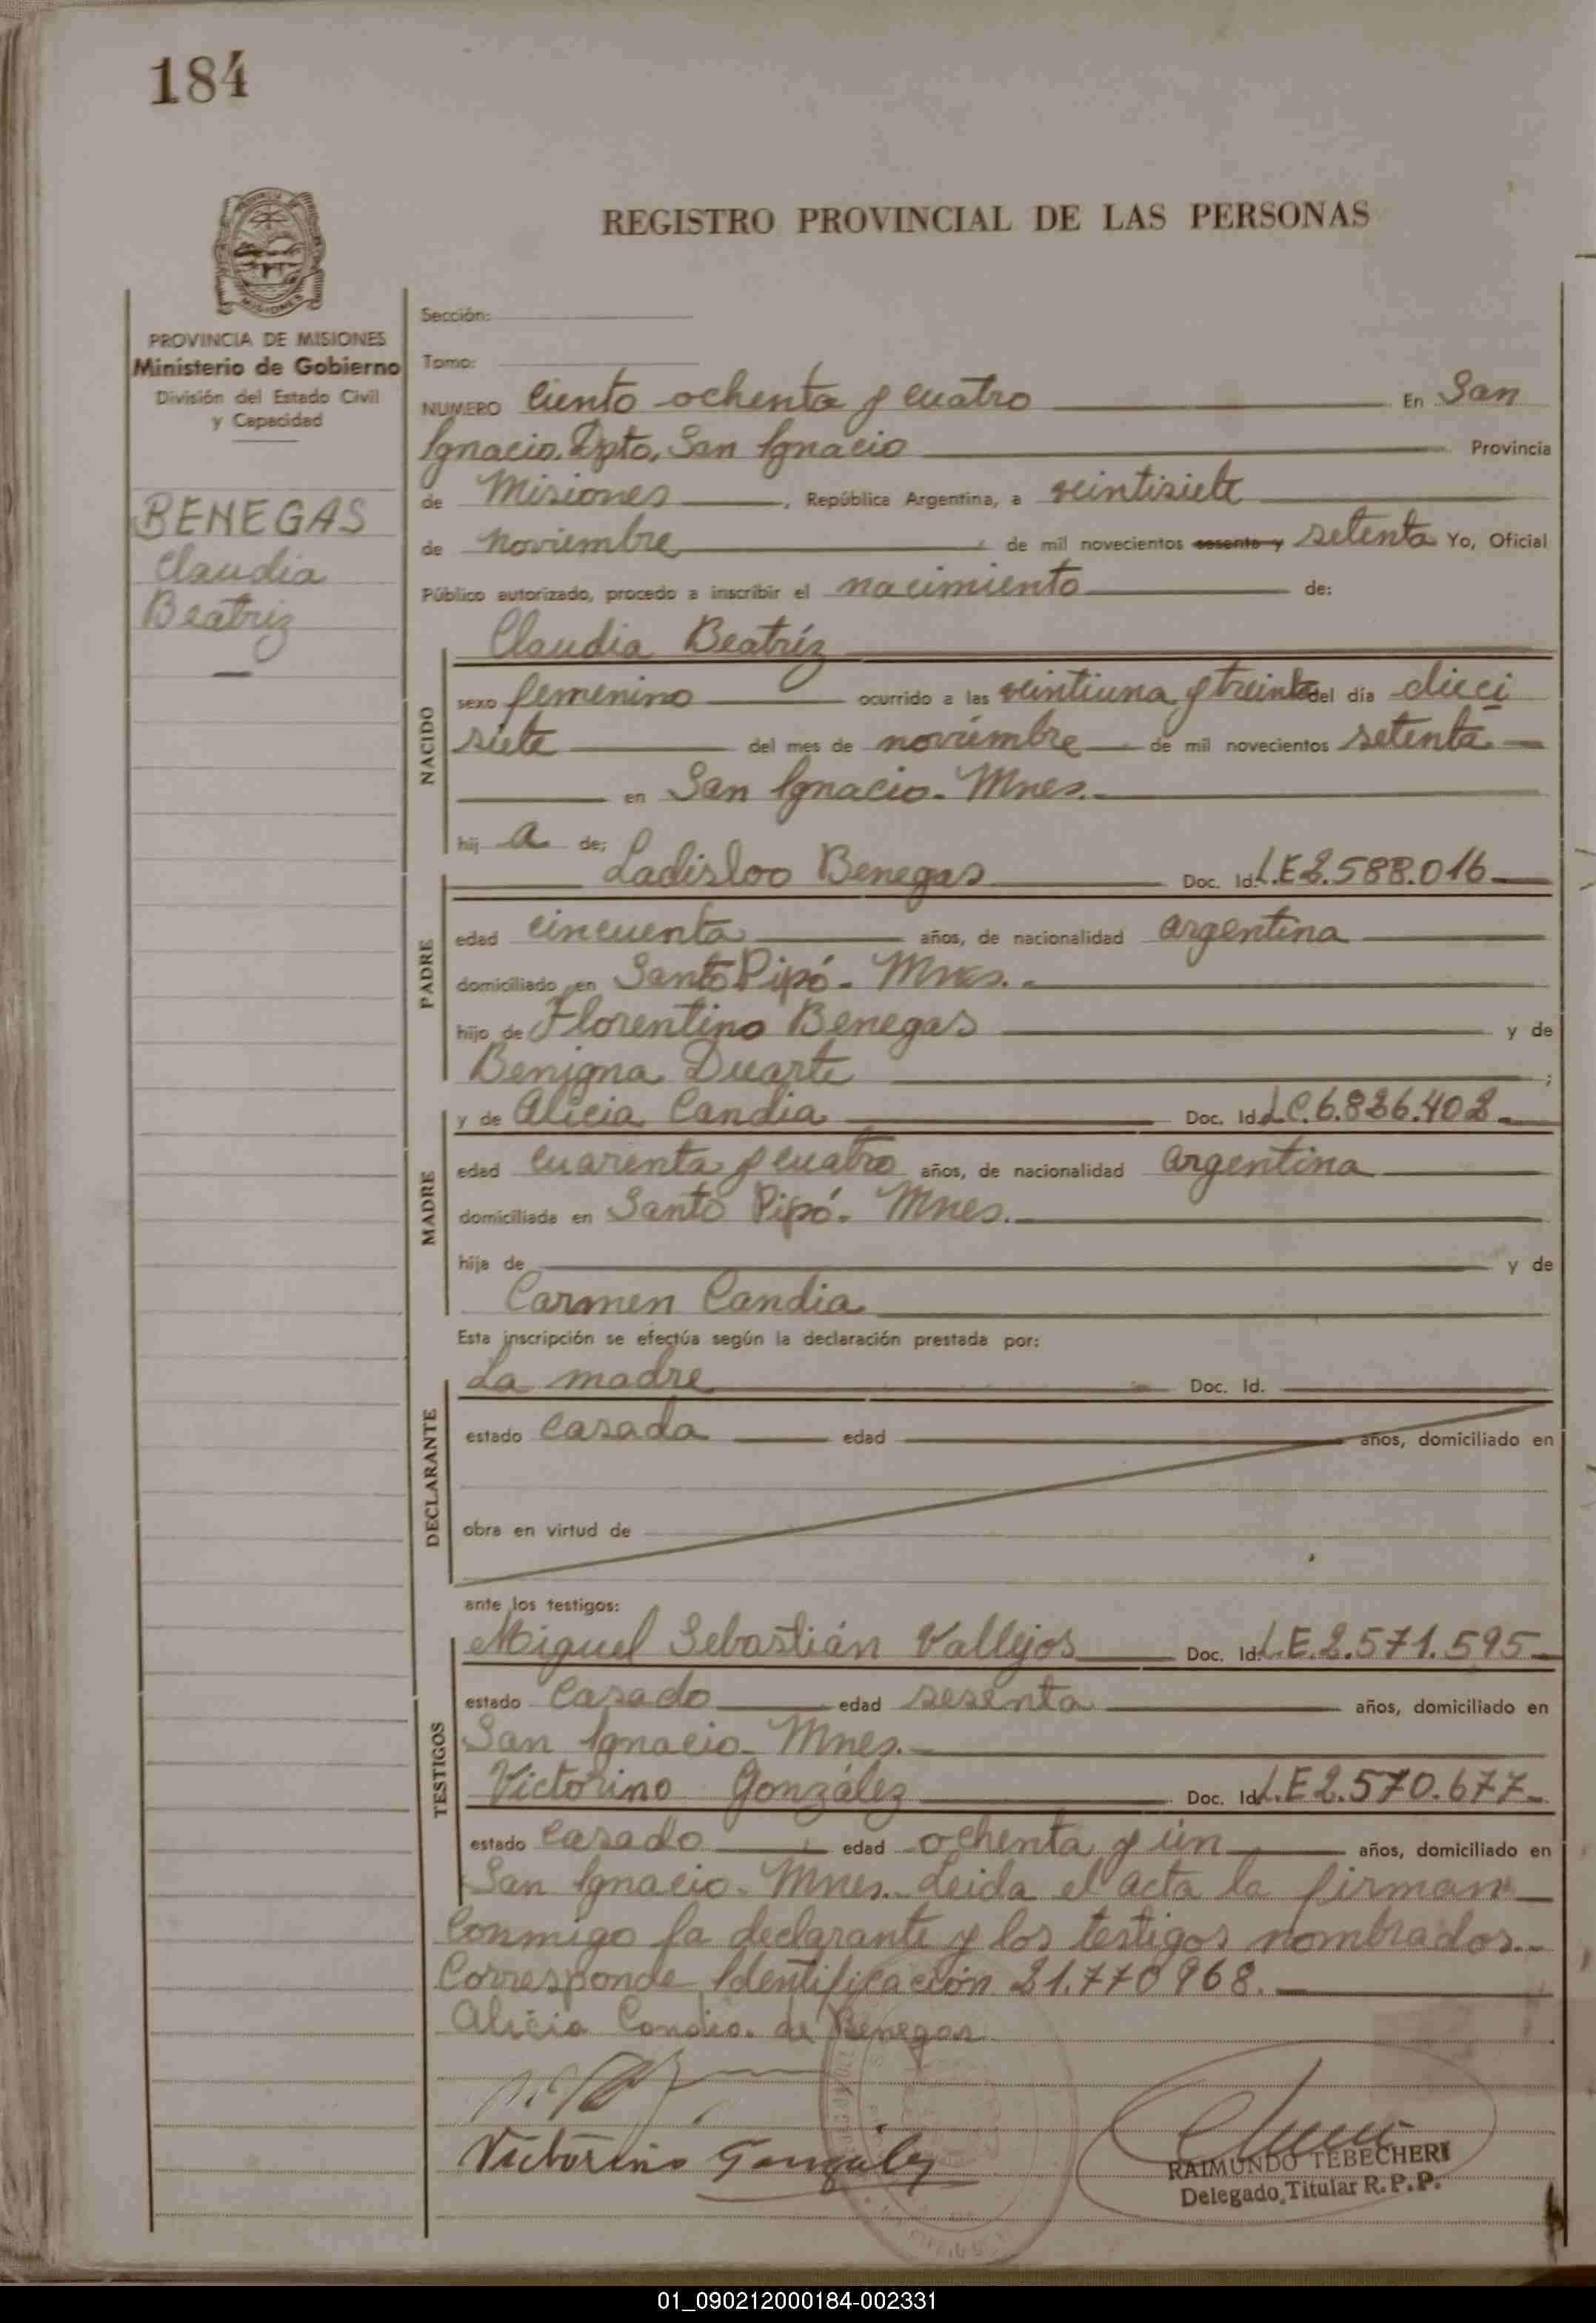 184
REGISTRO PROVINCIAL DE LAS PERSONAS
PROVINCIA DE MISIONES
Ministerio de Gobierno
División del Estado Civil
y Capacidad
BENEGAS
Claudia
Beatriz
Sección:
Tomo:
NUMERO Ciento ochenta y cuatro En San
Ignacio. Dpto. San Ignacio Provincia
de Misiones, República Argentina, a veintisiete
de noviembre de mil novecientos sesenta y setenta Yo, Oficial
Público autorizado, procedo a inscribir el nacimiento de:
NACIDO
Claudia Beatríz
sexo femenino ocurrido a las veintiuna y treinta del día dieci
siete del mes de noviembre de mil novecientos setenta
en San Ignacio. Mnes.
hij a de:
PADRE
Ladislao Benegas Doc. Id. L.E 2.588.016
edad cincuenta años, de nacionalidad argentina
domiciliado en Santo Pipó. Mnes.
hijo de Florentino Benegas y de
Benigna Duarte ;
MADRE
y de Alicia Candia Doc. Id. L.C. 6.826.402
edad cuarenta y cuatro años, de nacionalidad argentina
domiciliada en Santo Pipó. Mnes.
hija de y de
Carmen Candia
Esta inscripción se efectúa según la declaración prestada por:
DECLARANTE
La madre Doc. Id.
estado casada edad años, domiciliado en
obra en virtud de
ante los testigos:
TESTIGOS
Miguel Sebastián Vallejos Doc. Id. L.E. 2.571.595
estado casado edad sesenta años, domiciliado en
San Ignacio. Mnes.
Victorino González Doc. Id. L.E 2.570.677
estado casado edad ochenta y ún años, domiciliado en
San Ignacio. Mnes. Leida el acta la firman
conmigo la declarante y los testigos nombrados.
Corresponde Identificación 21.770968.
Alicia Candia. de Benegas
Victorino Gonzalez
RAIMUNDO TEBECHERI
Delegado Titular R.P.P.
01_090212000184-002331